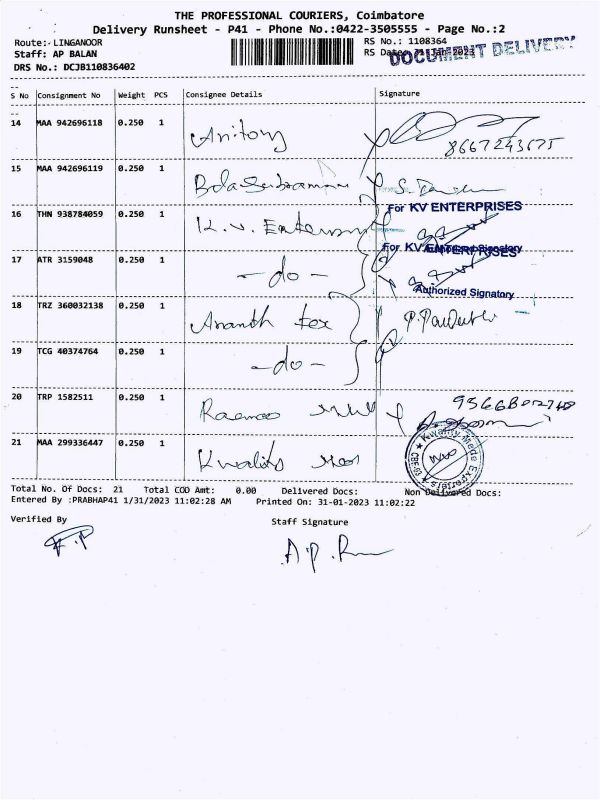 THE PROFESSIONAL COURIERS, Coimbatore
Delivery Runsheet - P41 - Phone No.:0422-3505555 - Page No.:2
Route:- LINGANOOR
RS No.: 1108364
Staff: AP BALAN
RS Date: 31 Jan 2023
DOCUMENT DELIVERY
DRS No.: DCJB110836402
S No Consignment No Weight PCS Consignee Details Signature
14 MAA 942696118 0.250 1 Anitony
8667243675
15 MAA 942696119 0.250 1
16 THN 938784059 0.250 1 K.V. Enterprises
For KV ENTERPRISES
Authorized Signatory
17 ATR 3159048 0.250 1 - do -
For KV ENTERPRISES
Authorized Signatory
18 TRZ 360032138 0.250 1 Ananth Tex
19 TCG 40374764 0.250 1 - do -
20 TRP 1582511 0.250 1
21 MAA 299336447 0.250 1
Total No. Of Docs: 21 Total COD Amt: 0.00 Delivered Docs: Non Delivered Docs:
Entered By :PRABHAP41 1/31/2023 11:02:28 AM Printed On: 31-01-2023 11:02:22
Verified By
Staff Signature